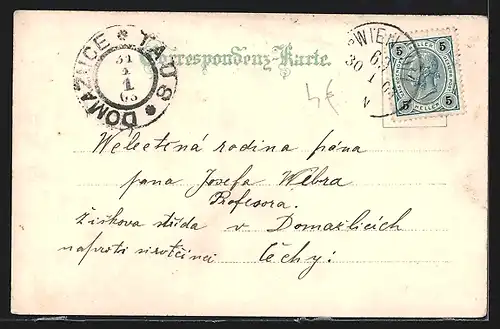 Correspondenz-Karte.
TAUS * DOMAŽLICE *
31
1
03
WIEN
63
30 1 0
5 HELLER 5
5 HELLER 5
4€
Welectěná rodina pána
pana Josefa Webra
Profesora.
Žižkova třída v Domažlicích
naproti sirotčinci Čechy!